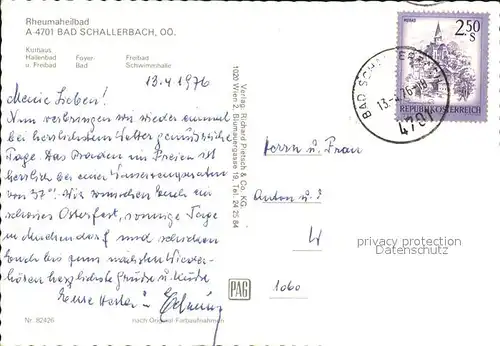 Rheumaheilbad
A 4701 BAD SCHALLERBACH, OÖ.
Kurhaus
Hallenbad Foyer Freibad
u. Freibad Bad Schwimmhalle
13.4.1976
Meine Lieben!
Nun verbringen wir wieder einmal
bei herrlichstem Wetter genussreiche
Tage. Das Baden im Freien ist
herrlich bei einer Wassertemperatur
von 37°! Wir wünschen Euch ein
schönes Osterfest, sonnige Tage
in und schicken
Euch bis zum nächsten Wieder-
hören herzlichste Grüße und Küsse
Eure
Nr. 82426 nach Original-Farbaufnahmen
Verlag: Richard Pietsch & Co. KG.
1020 Wien 2, Blumauergasse 19, Tel. 24 25 84
PAG
2.50
S
MURAU
REPUBLIK ÖSTERREICH
BAD SCHALLERB
13.-4.76
4701
Herrn u. Frau
Anton u.
W
1060
privacy protection
Datenschutz